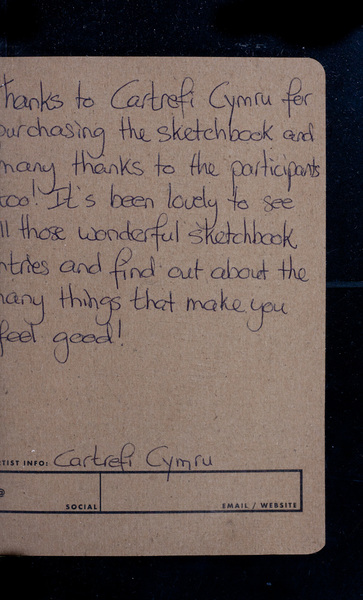 hanks to Cartrefi Cymru for
purchasing the sketchbook and
many thanks to the participants
too! It's been lovely to see
ll those wonderful sketchbook
ntries and find out about the
many things that make you
feel good!
TIST INFO: Cartrefi Cymru
@
SOCIAL EMAIL / WEBSITE